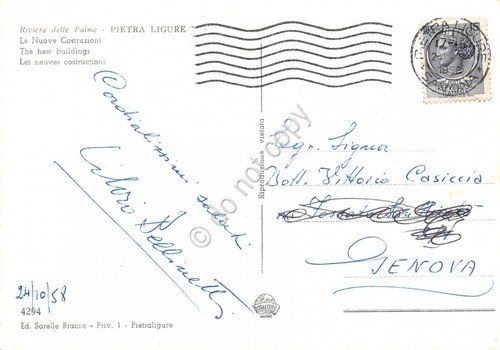 Riviera delle Palme - PIETRA LIGURE
Le Nuove Costruzioni
The hew buildings
Les neuves costructions
Cordialissimi saluti
24/10/58
4294
Ed. Sorelle Bracco - Priv. 1 - Pietraligure
Riproduzione vietata
Egr. Signor
Dott. Vittorio Casiccia
GENOVA
do not copy